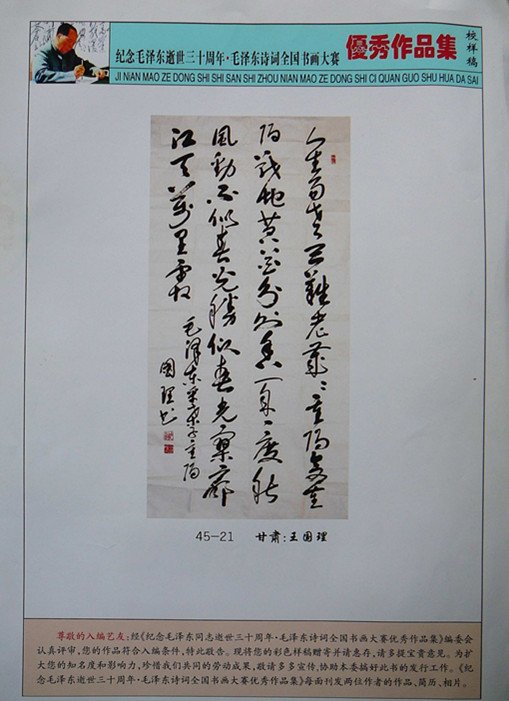 纪念毛泽东逝世三十周年·毛泽东诗词全国书画大赛
優秀作品集
校样稿
JI NIAN MAO ZE DONG SHI SHI SAN SHI ZHOU NIAN MAO ZE DONG SHI CI QUAN GUO SHU HUA DA SAI
人生易老天難老歲〻重陽今又重
陽戰地黃花分外香一年一度秋
風動不似春光勝似春光寥廓
江天萬里霜
毛澤东采桑子重陽
國理书
45—21 甘肃:王国理
尊敬的入编艺友:经《纪念毛泽东同志逝世三十周年·毛泽东诗词全国书画大赛优秀作品集》编委会
认真评审,您的作品符合入编条件,特此敬告。现将您的彩色样稿赠寄并请惠存,请多提宝贵意见。为扩
大您的知名度和影响力,珍惜我们共同的劳动成果,敬请多多宣传,协助本委搞好此书的发行工作。《纪
念毛泽东逝世三十周年·毛泽东诗词全国书画大赛优秀作品集》每面刊发两位作者的作品、简历、相片。